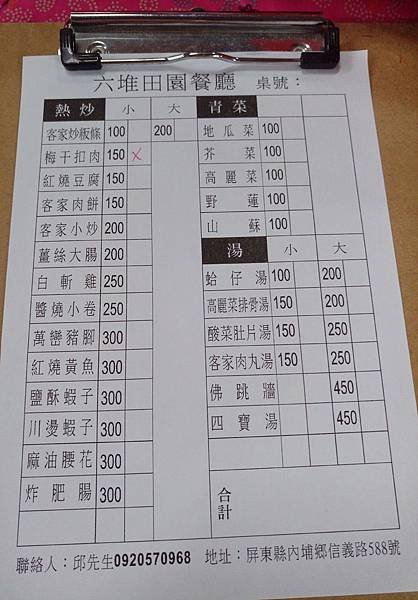 六堆田園餐廳 桌號：
熱炒 小 大
客家炒粄條 100 200
梅干扣肉 150 X
紅燒豆腐 150
客家肉餅 150
客家小炒 200
薑絲大腸 200
白斬雞 250
醬燒小卷 250
萬巒豬腳 300
紅燒黃魚 300
鹽酥蝦子 300
川燙蝦子 300
麻油腰花 300
炸肥腸 300
青菜
地瓜菜 100
芥菜 100
高麗菜 100
野蓮 100
山蘇 100
湯 小 大
蛤仔湯 100 200
高麗菜排骨湯 150 200
酸菜肚片湯 150 250
客家肉丸湯 150 250
佛跳牆 450
四寶湯 450
合計
聯絡人：邱先生0920570968 地址：屏東縣內埔鄉信義路588號